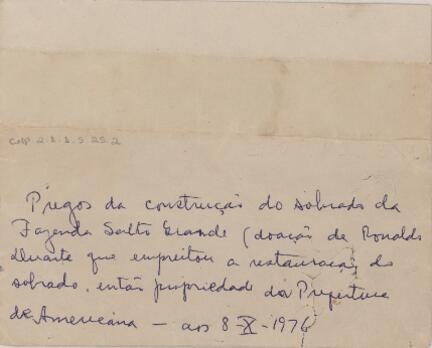 Cmp 2.1.1.5.25.2
Pregos da construção do sobrado da
Fazenda Salto Grande (doação de Ronaldo
Duarte que empreitou a restauração do
sobrado, então propriedade da Prefeitura
de Americana — aos 8-X-1976